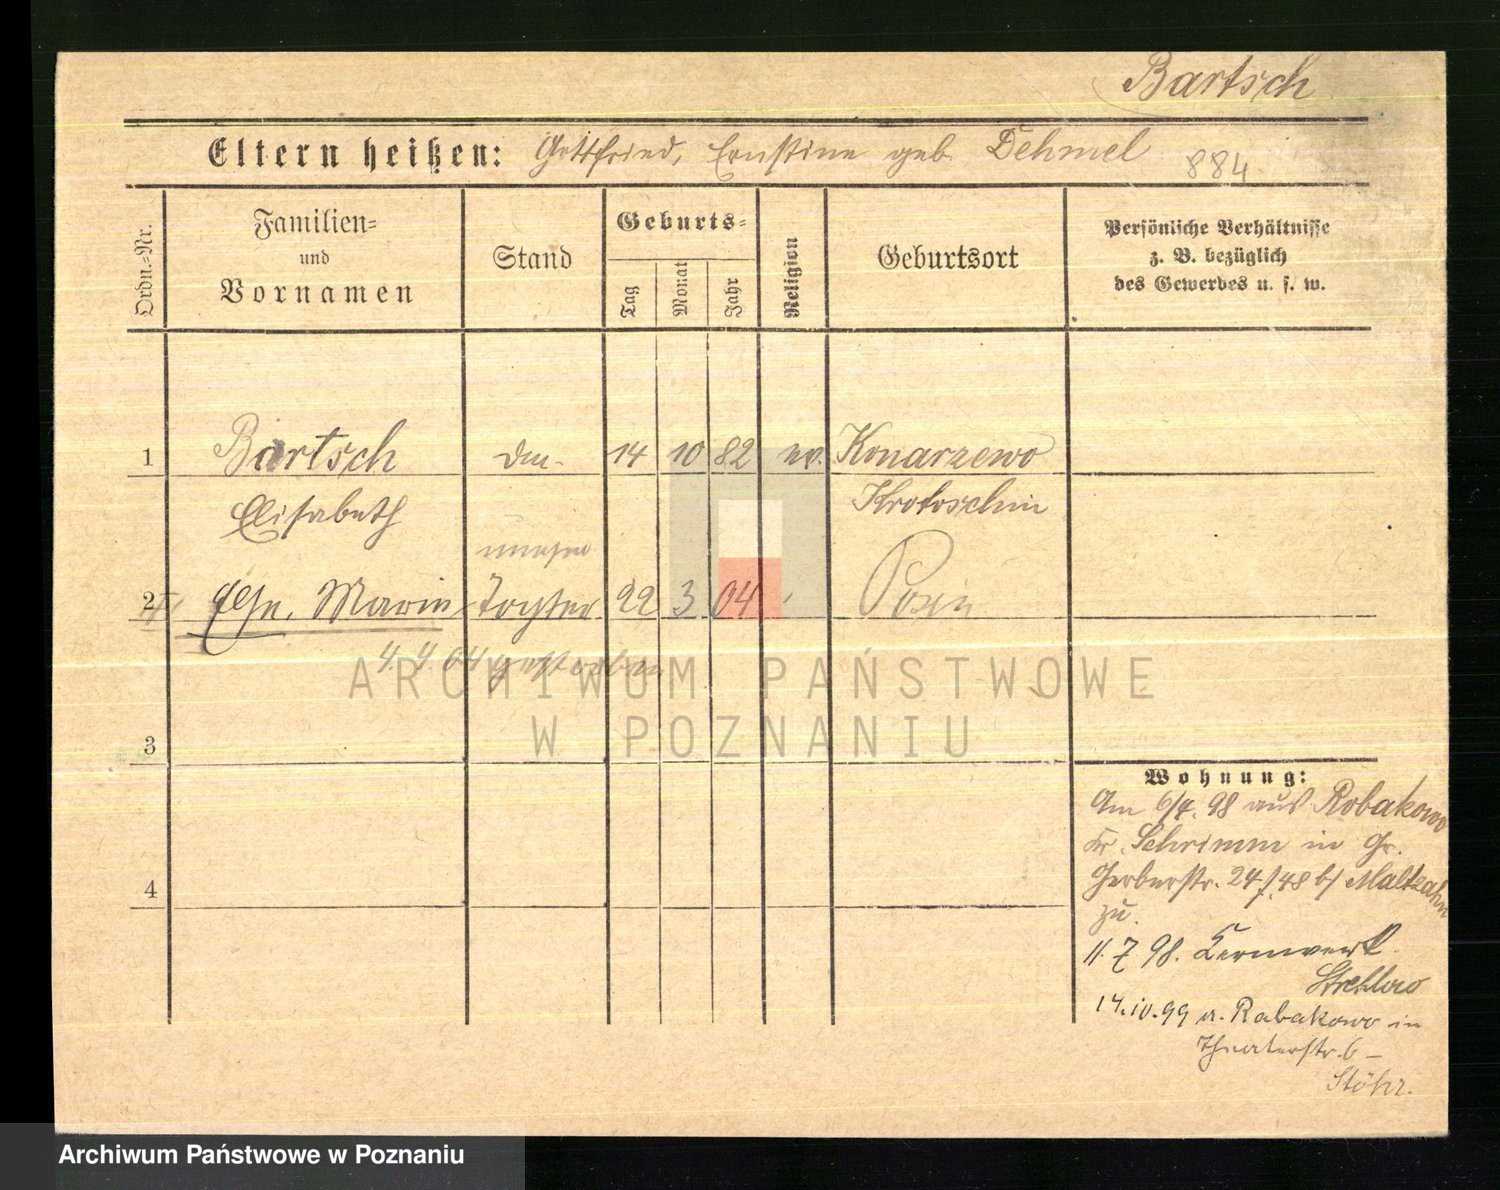 Bartsch
Eltern heißen: Gottfried, Ernstine geb. Dehmel 884
Ordn.-Nr.
Familien-
und
Vornamen
Stand
Geburts-
Tag
Monat
Jahr
Religion
Geburtsort
Persönliche Verhältnisse
z. B. bezüglich
des Gewerbes u. s. w.
1 Bartsch 14 10 82 ev. Konarzewo
Elisabeth Krotoschin
unehel
2 Marie Tochter 22 3 04 Posen
4.4.04 gestorben
3
4
Wohnung:
Am 6/4.98 aus Robakowo
Kr. Schrimm in Gr.
Gerberstr. 24/48 b/ Maltzahn
zu.
11.7 98. Kernwerk
Strehlow
14.10.99 a. Rabakowo in
Theaterstr. 6 –
Stöhr.
ARCHIWUM PAŃSTWOWE
W POZNANIU
Archiwum Państwowe w Poznaniu